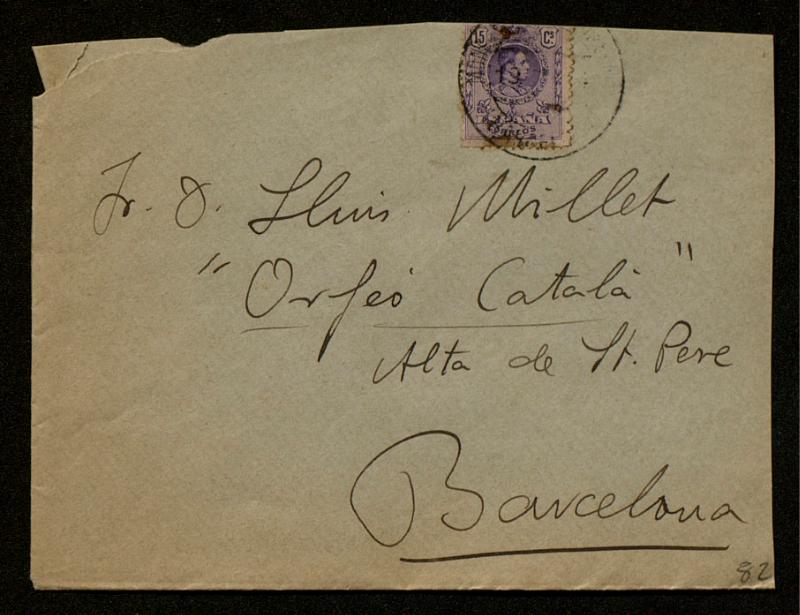 15 Cs
CORREOS
Sr. D. Lluis Millet
"Orfeó Català"
Alta de St. Pere
Barcelona
82